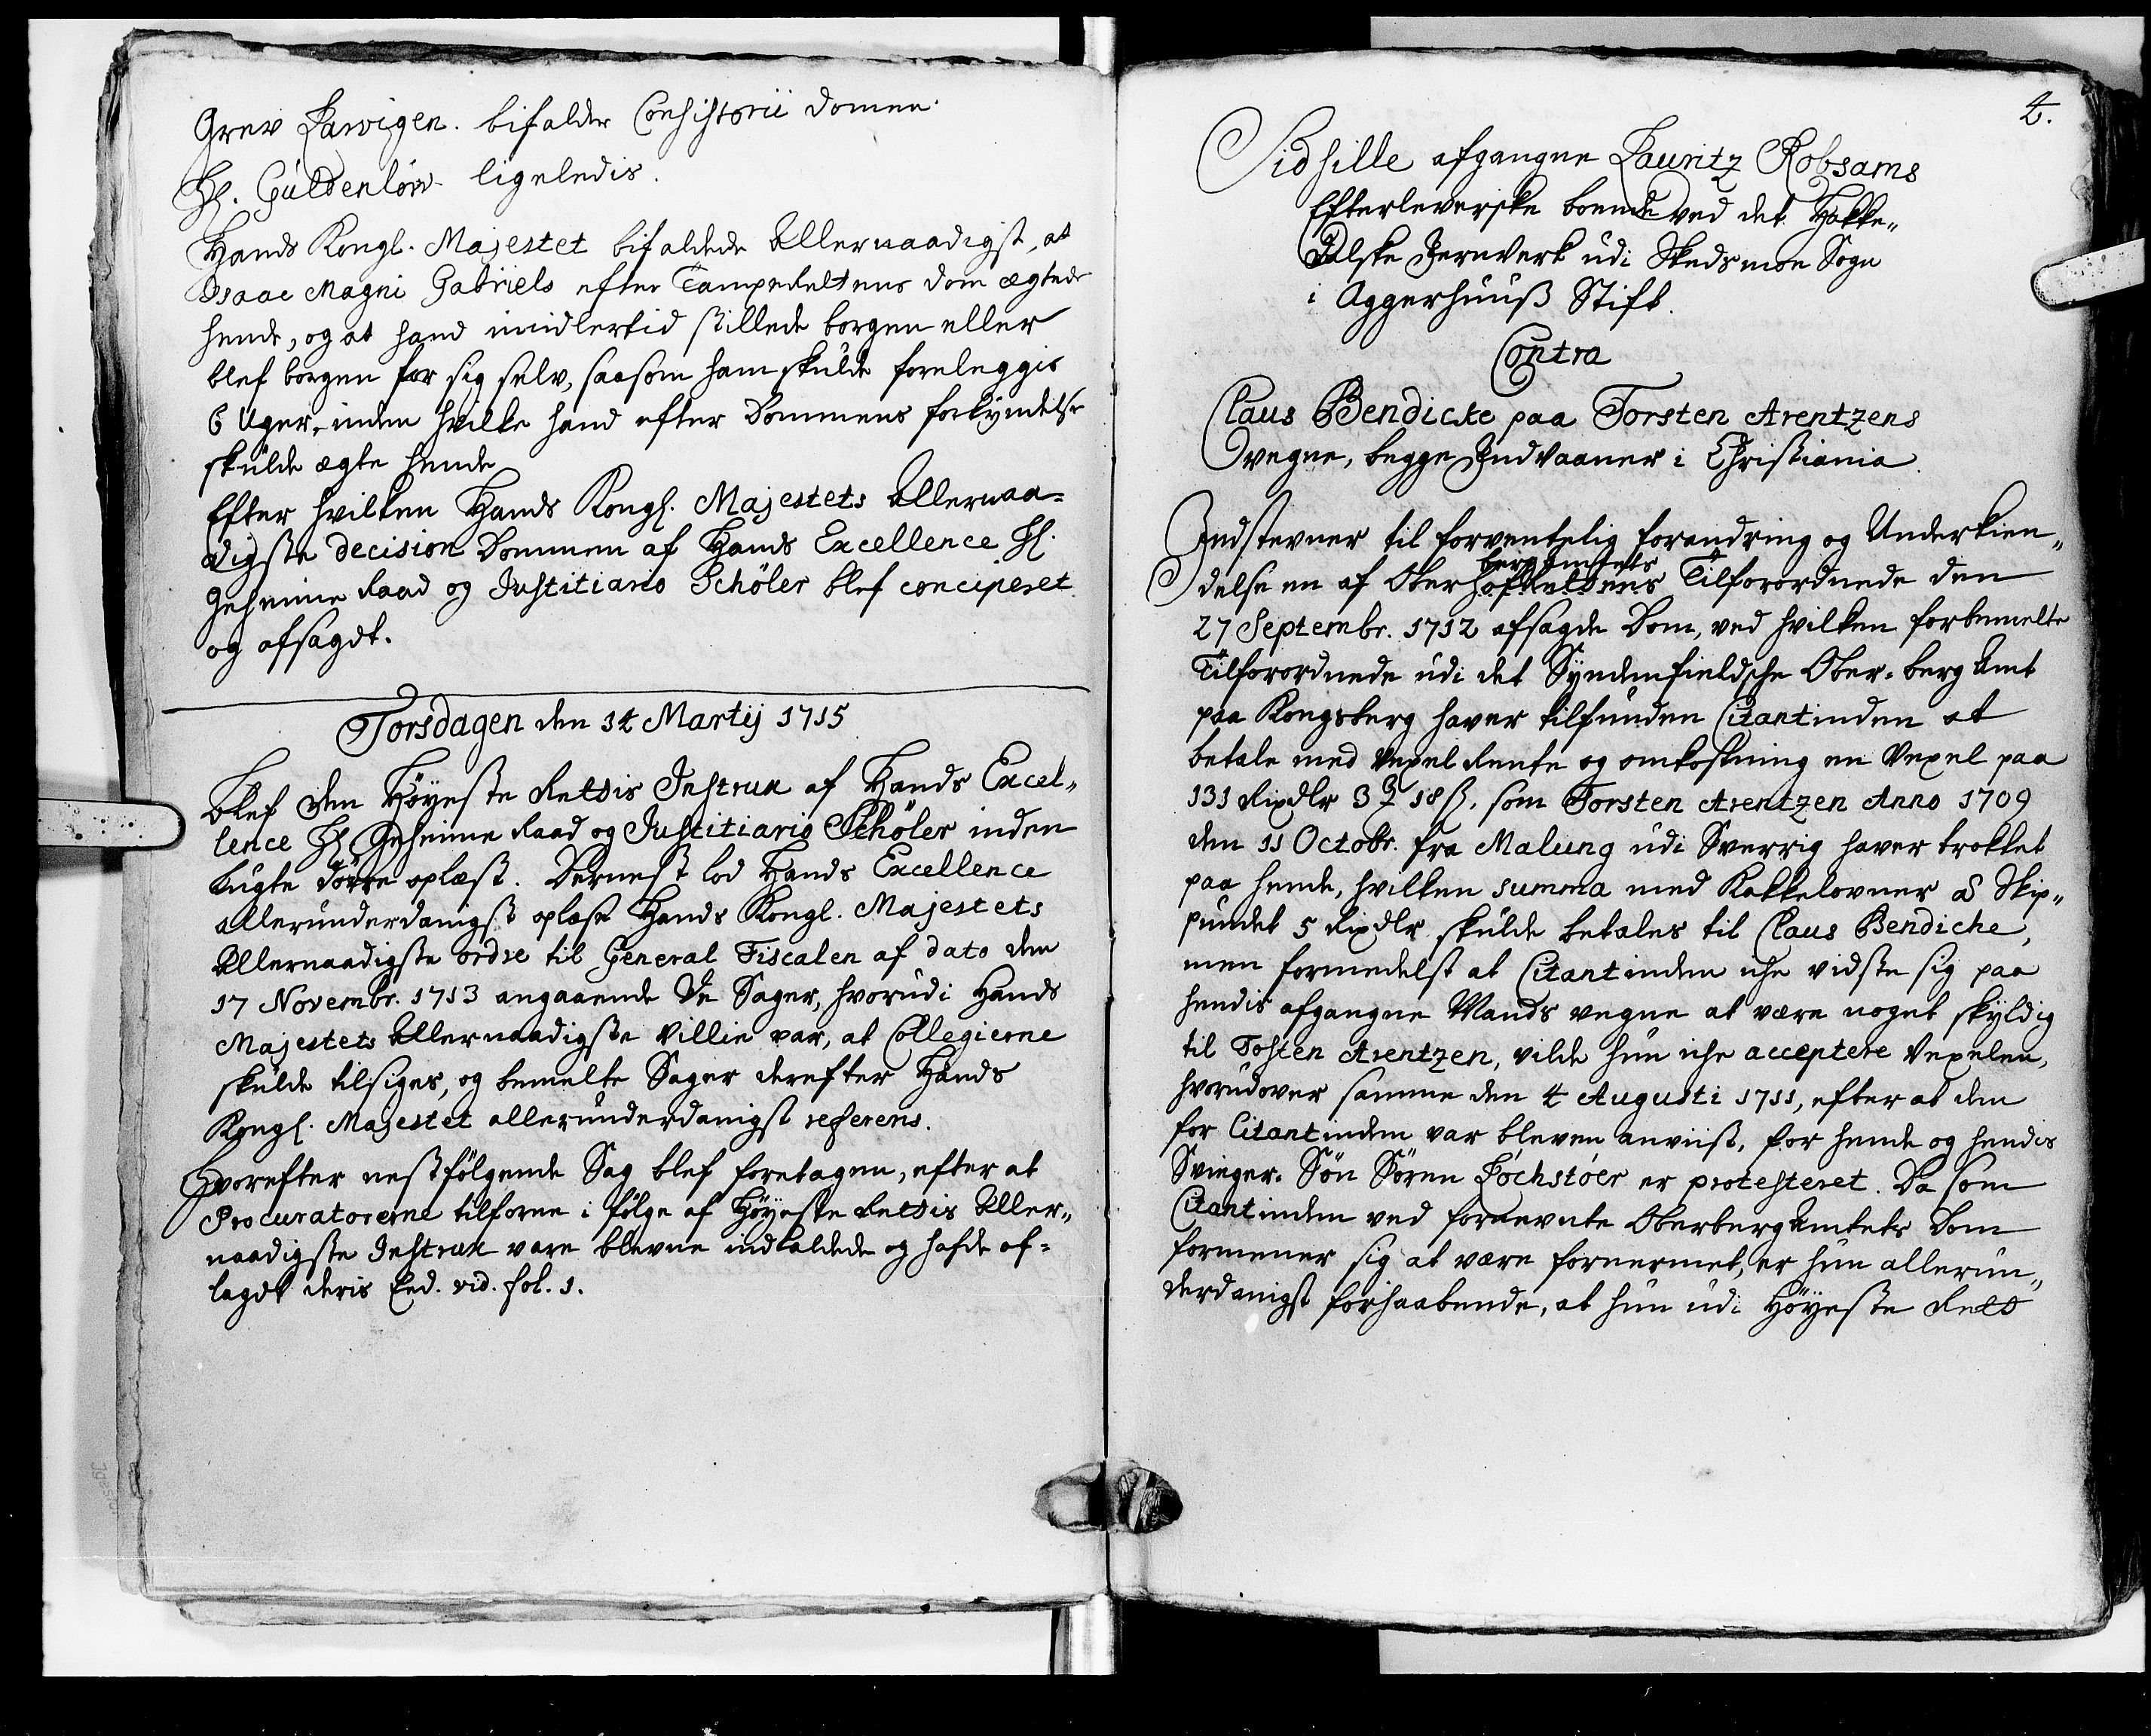 Grev Larvigen. bifalder Consistorii domen.
Hl. Güldenlöw ligeledis.
Hands Kongl. Majestet bifaldede Allernaadigst, at
Isaac Magni Gabriels efter Tamperettens dom ægtede
hende, og at hand imidlertid stillede borgen eller
blef borgen for sig selv, saasom ham skulde foreleggis
6 Uger, inden hvilke hand efter Dommens forkyndelse
skulde ægte hende
Efter hvilken Hands Kongl. Majestets Allernaa=
digste decision Dommen af Hands Excellence Hl.
Geheime Raad og Justitiario Schöler blef conciperet
og afsagdt.
Torsdagen den 14 Martij 1715
Blef den Höyeste Rettis Instrux af Hands Excel„
lence Hl Geheime Raad og Justitiario Schöler inden
Lugte dörre oplæst. Dernest lod Hands Excellence
allerunderdanigst oplæse Hands Kongl. Majestets
Allernaadigste ordre til General Fiscalen af dato den
17 Novembr. 1713 angaaende De Sager, hvorudi Hands
Majestets Allernaadigste Villie var, at Collegierne
skulde tilsiges, og bemelte Sager derefter Hands
Kongl. Majestet allerunderdanigst referens.
Hvorefter nestfölgende Sag blef foretagen, efter at
Procuratorerne tilforne i fölge af Höyeste Rettis Aller„
naadigste Instrux vare blevne indkaldede og hafde af=
lagdt deris Eed. vid. fol. 1.
4.
Sidsille afgangne Lauritz Robsams
Efterleverske boende ved det Hakke„
Dalske Jernverk udi Skedsmoe Sogn
i Aggerhuuß Stift.
Contra
Claus Bendicke paa Torsten Arentzens
vegne, begge Indvaaner i Christiania.
Indstevner til forventelig forandring og Underkien„
bergAmtets
delse en af Oberhofrettens Tilforordnede den
27 Septembr. 1712 afsagde Dom, ved hvilken forbemelte
Tilforordnede udi det Syndenfieldsche Ober-berg Amt
paa Kongsberg haver tilfunden Citantinden at
betale med Vexel Rente og omkostning en Vexel paa
131 Rixdlr 3 ℥ 18 ß. som Torsten Arentzen Anno 1709
den 11 Octobr. fra Malung udi Sverrig haver trokket
paa hende, hvilken summa med Kakkelovner a Skip„
pundet 5 Rixdlr skulde betales til Claus Bendiche,
men formedelst at Citantinden iche vidste sig paa
hendis afgangne Mands vegne at være noget skyldig
til Tosten Arentzen, vilde hun iche acceptere Vexelen,
hvorudover samme den 4 Augusti 1711, efter at den
for Citantinden var bleven anviist, for hende og hendis
Svieger-Sön Sören Lóchstóer er protesteret. Da som
Citantinden ved fornevnte OberbergAmtets Dom
formener sig at være fornermet, er hun allerun„
derdanigst forhaabende, at hun udi Höyeste Rett